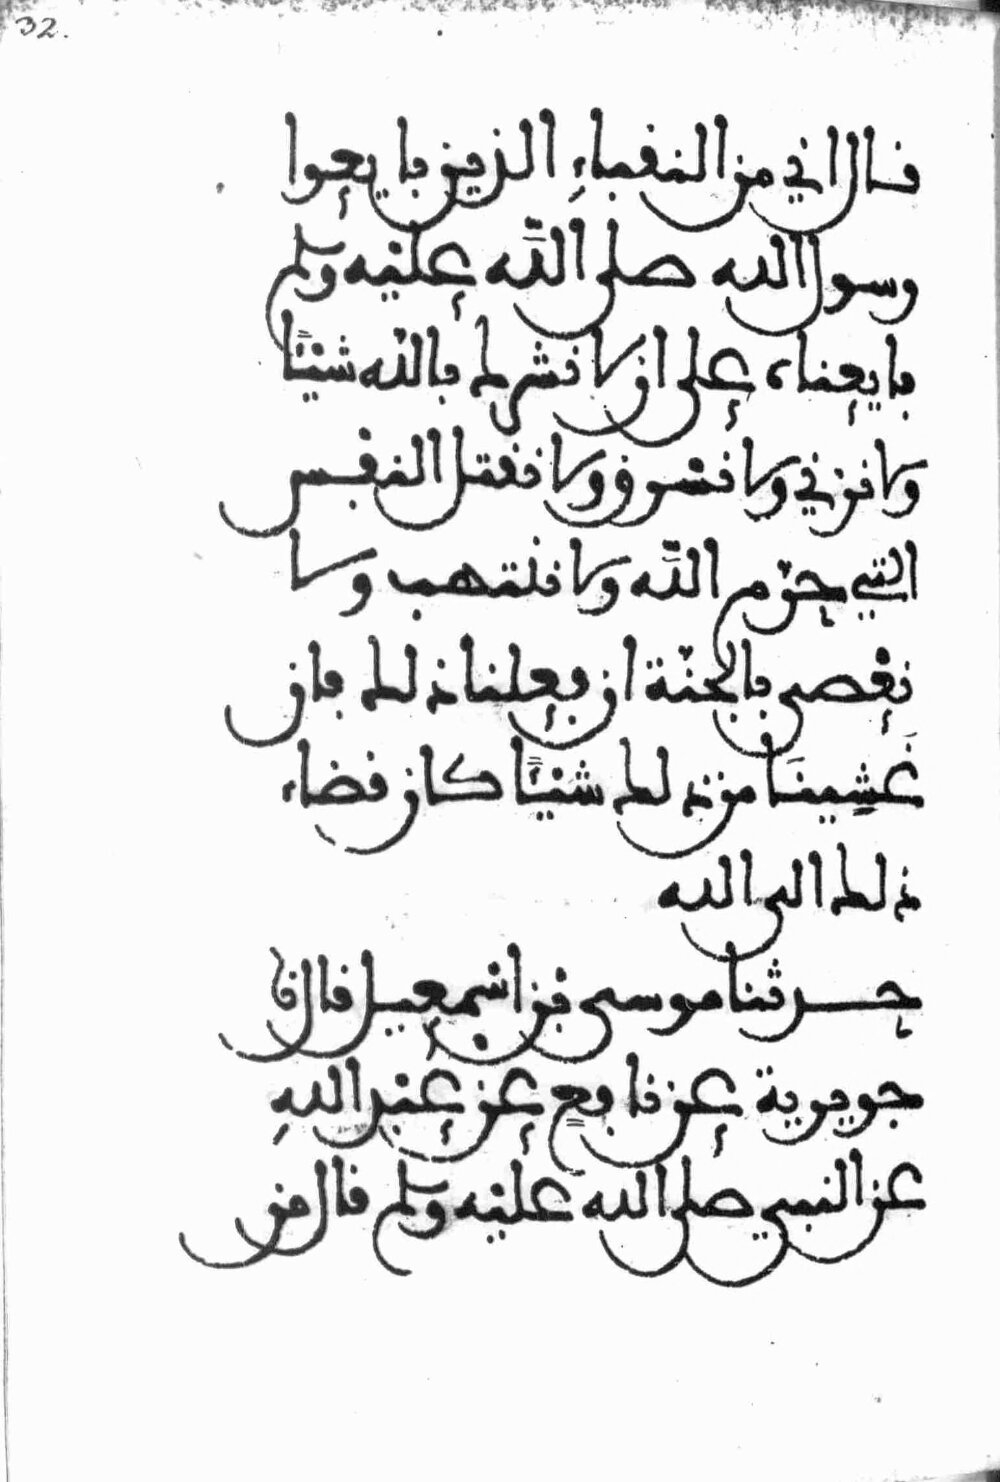 32.
قال اني من النقباء الذين بايعوا
رسول الله صلى الله عليه وسلم
بايعناه على ان لا نشرك بالله شيئا
ولا نزني ولا نسرق ولا نقتل النفس
التي حرم الله ولا ننتهب ولا
نعصي بالجنة ان فعلنا ذلك فان
غَشِينَا من ذلك شيئا كان قضاء
ذلك الى الله
حدثنا موسى بن اسمعيل قال نا
جويرية عن نافع عن عبد اللهِ
عن النبي صلى الله عليه وسلم قال من